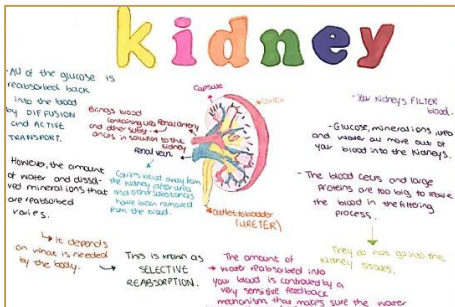 kidney
- All of the glucose is
reabsorbed back
into the blood
by DIFFUSION
and ACTIVE
TRANSPORT.
However, the amount
of water and dissol-
ved mineral ions that
are reabsorbed
varies.
↳ It depends
on what is needed
by the body.
This is known as
SELECTIVE
REABSORPTION.
Brings blood
containing urea
and other subst-
ances in solution to the
kidney
Renal artery
Renal vein
Carries blood away from
the kidney after urea
and other substances
have been removed
from the blood.
Capsule
Outlet to bladder
(URETER)
The amount of
water reabsorbed into
your blood is controlled by a
very sensitive feedback
mechanism that makes sure the water
- Your kidneys FILTER
blood.
- Glucose, mineral ions, urea
and water all move out of
your blood into the kidneys.
- The blood cells and large
proteins are too big to leave
the blood in the filtering
process.
They do not go into the
kidney tissues.